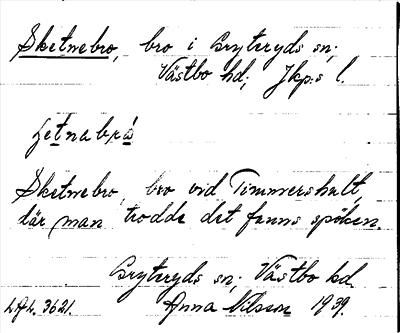 Sketnebro, bro i Gryteryds sn;
Västbo hd; Jkp:s l.
Sketnebro, bro vid Timmershult,
där man trodde det fanns spöken.
Gryteryds sn; Västbo hd.
Anna Nilsson 1939.